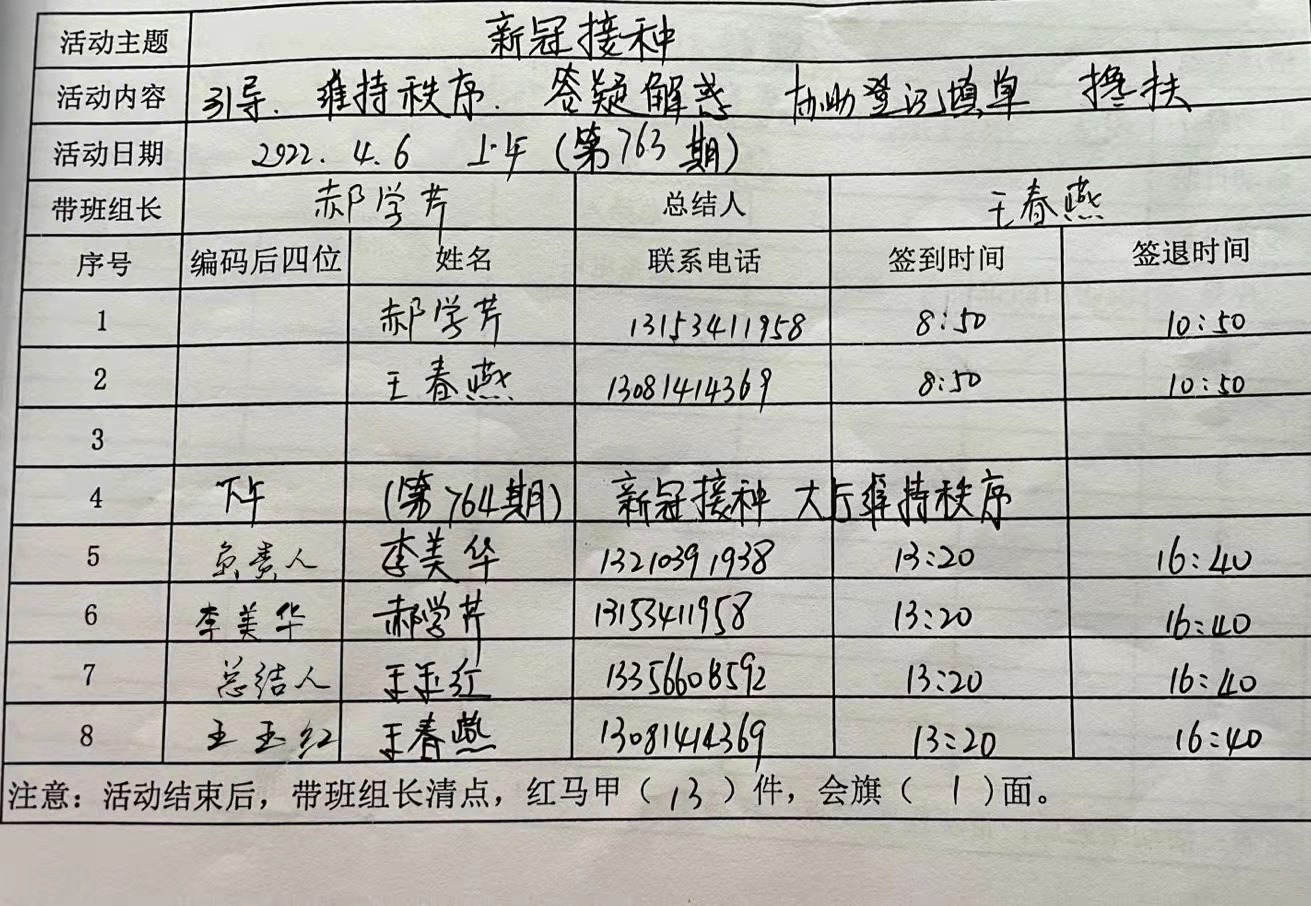 活动主题 新冠接种
活动内容 引导. 维持秩序. 答疑解惑 协助登记填单 搀扶
活动日期 2922. 4. 6 上午 (第763期)
带班组长 郝学芹 总结人 王春燕
序号 编码后四位 姓名 联系电话 签到时间 签退时间
1 郝学芹 13153411958 8:50 10:50
2 王春燕 13081414369 8:50 10:50
3
4 下午 (第764期) 新冠接种 大厅维持秩序
5 负责人 李美华 13210391938 13:20 16:40
6 李美华 郝学芹 13153411958 13:20 16:40
7 总结人 王玉红 13356608592 13:20 16:40
8 王玉红 王春燕 13081414369 13:20 16:40
注意：活动结束后，带班组长清点，红马甲（13）件，会旗（1）面。